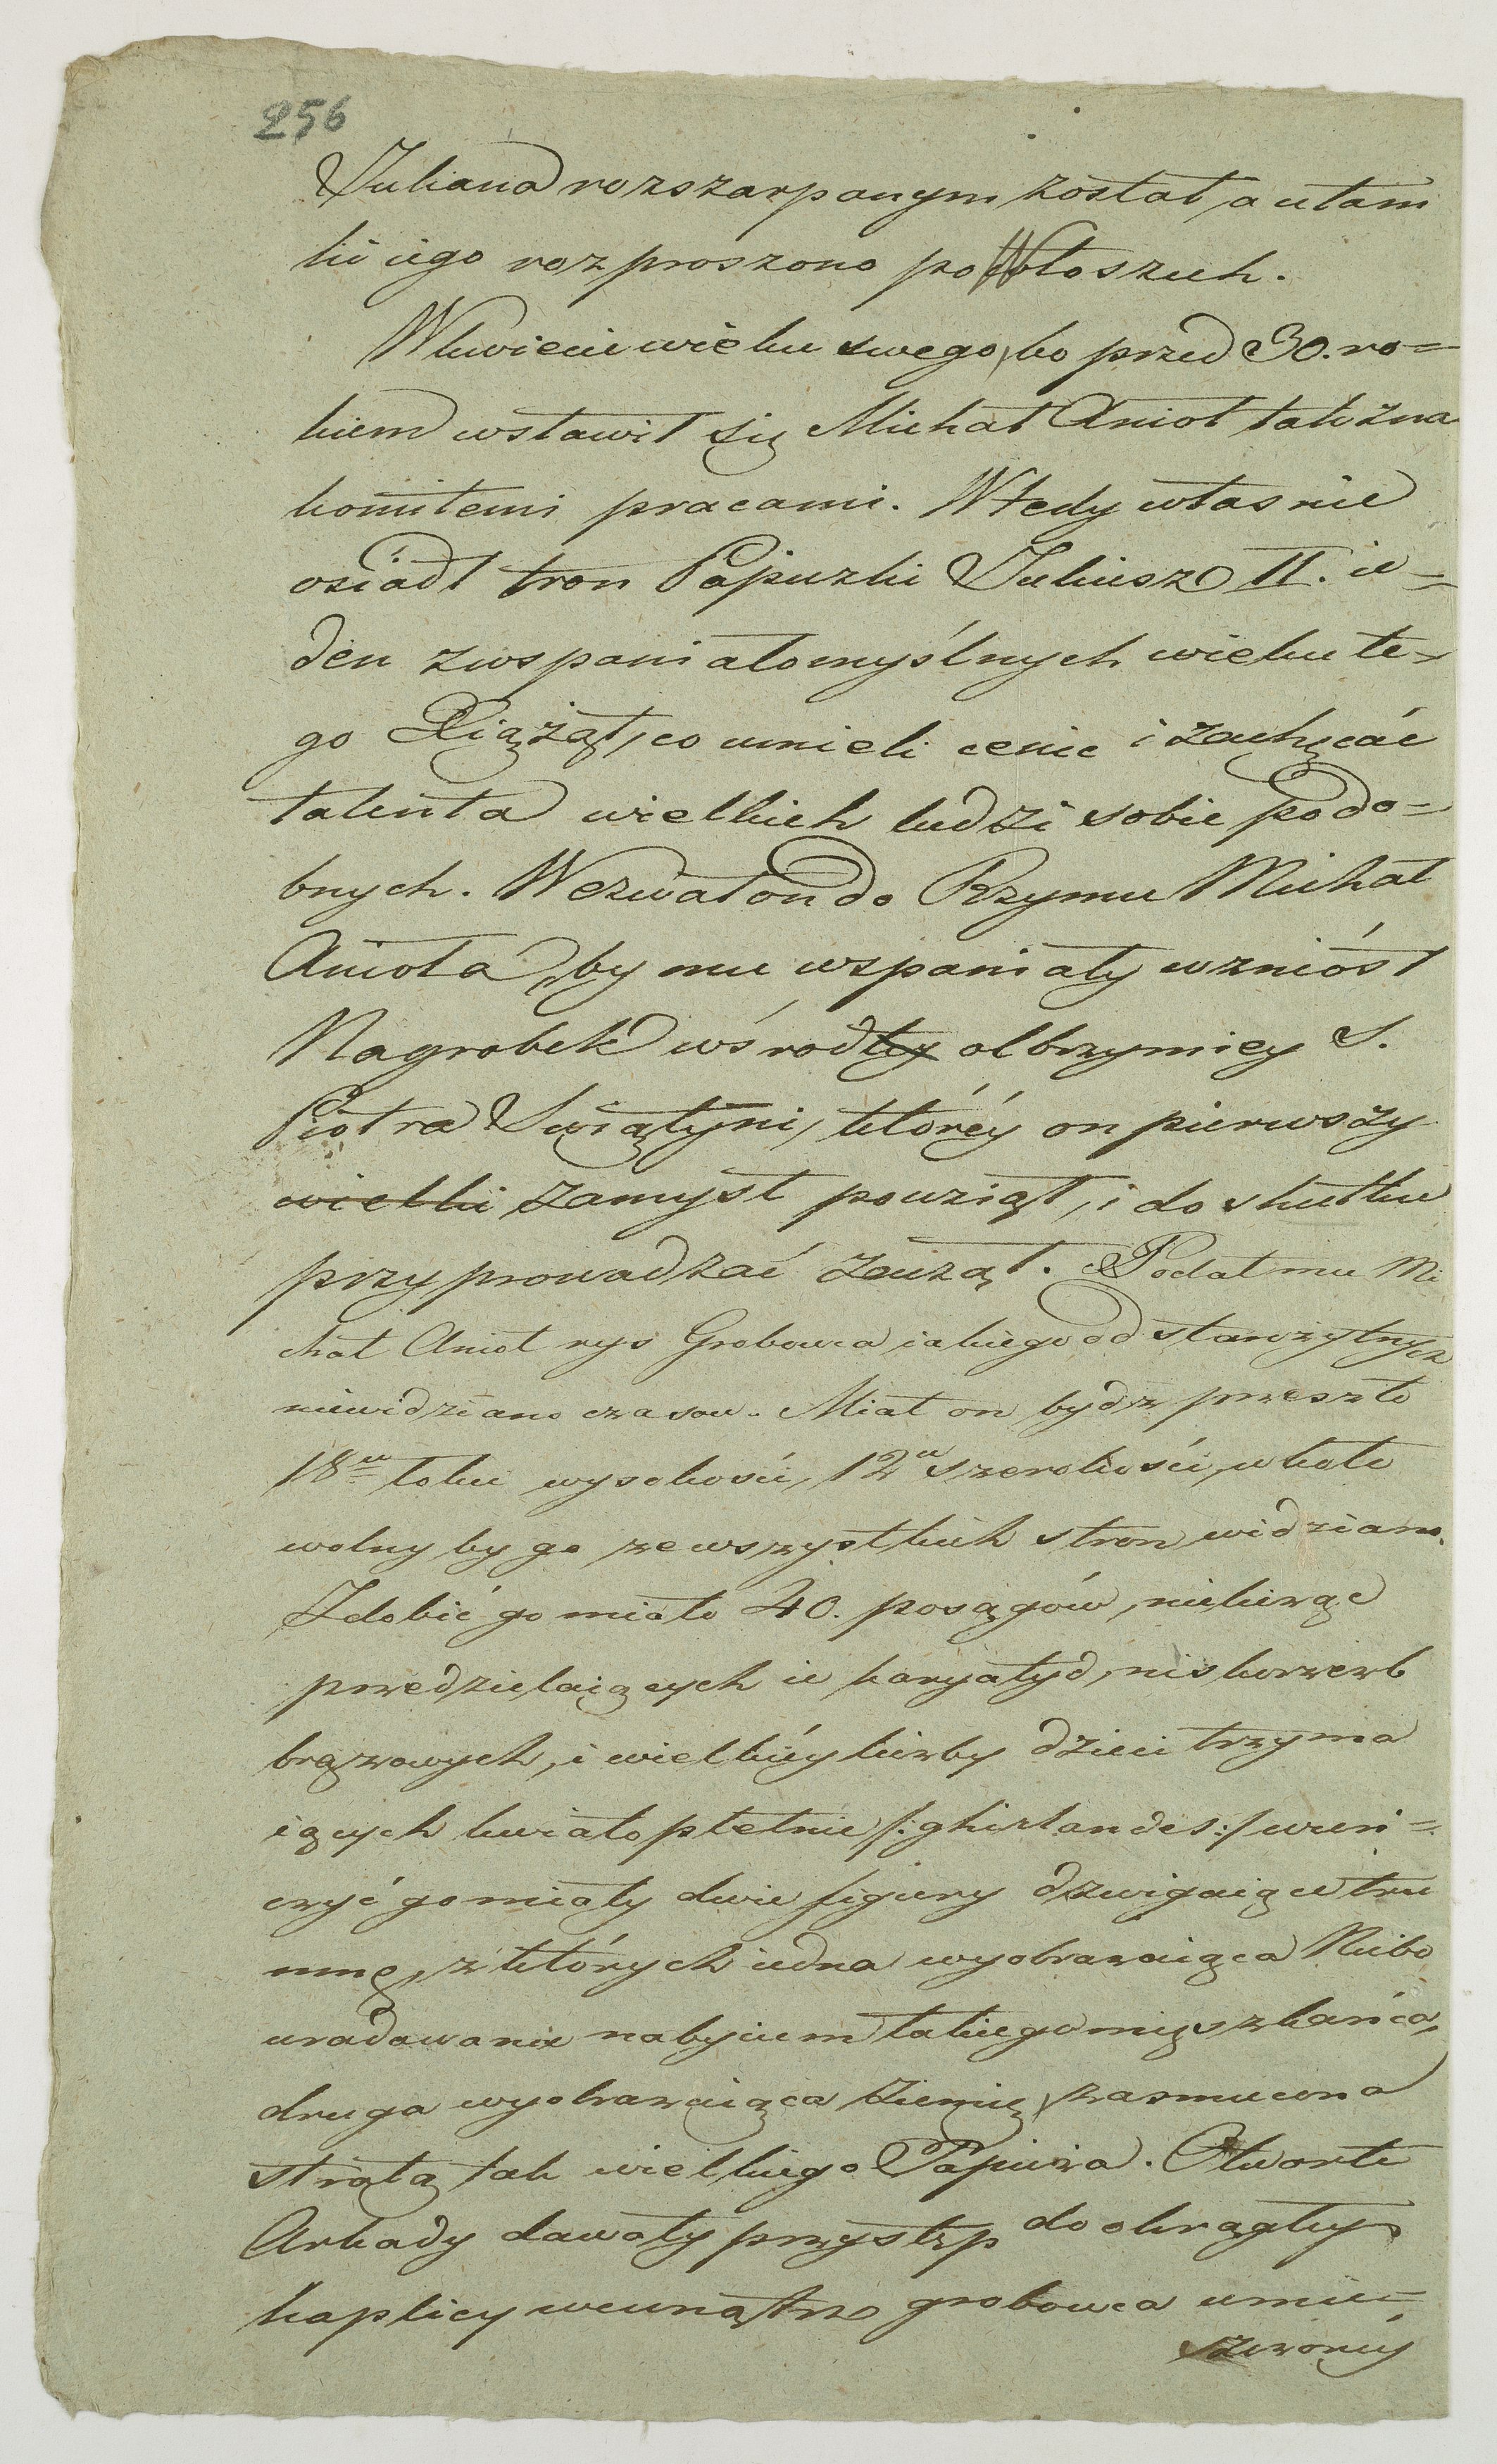 256
Juliana rozszarpanym został, a ułam
ki iego rozproszono po Włoszech.
W kwiecie wieku swego, bo przed 30. ro=
kiem wsławił się Michał Anioł tak zna
komitemi pracami. Wtedy własnie
osiadł tron Papiezki Juliusz II. ie=
den zwspaniałomyślnych wieku te=
go Xiążąt, co umieli cenic i zachęcáć
talenta wielkich ludzi sobie podo=
bnych. Wezwał on do Rzymu Michał
Anioła, by mu wspaniały wzniósł
Nagrobek wśrod tey olbrzymiey S.
Piotra Swiątyni, któréy on pierwszy
wielki zamysł powziął, i do skutku
przyprowadzać zaczął. Podał mu Mi
chał Anioł rys Grobowca iakiego od starożytnych
niewidziano czasow. Miał on bydz przeszło
18u łokci wysokości, 12u szerokości, w koło
wolny by go ze wszystkich stron widziano.
Zdobić go miało 40. posągów, nielicząc
przedzielaiących ie karyatyd, niskorzezb
brązowych, i wielkiéy liczby dzieci trzyma
iących kwiatopletnie /: ghirlandes :/ wień=
czyć go miały dwie figury dzwigaiące tru
mnę, z których iedna wyobrazaiąca Niebo
uradowane nabyciem takiego mięszkańca,
druga wyobrazaiąca Ziemię, zasmucona
stratą tak wielkiego Papieża. Otwarte
Arkady dawały przystęp do okrągłey
kaplicy wewnątrz grobowca umie=
szczonéy